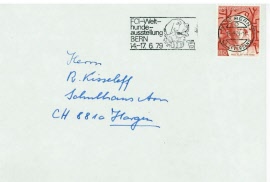 FCI-Welt-
hunde-
ausstellung
BERN
14.-17.6.79
Herrn
R. Kisseleff
Schulhaus Aon
CH 8810 Horgen